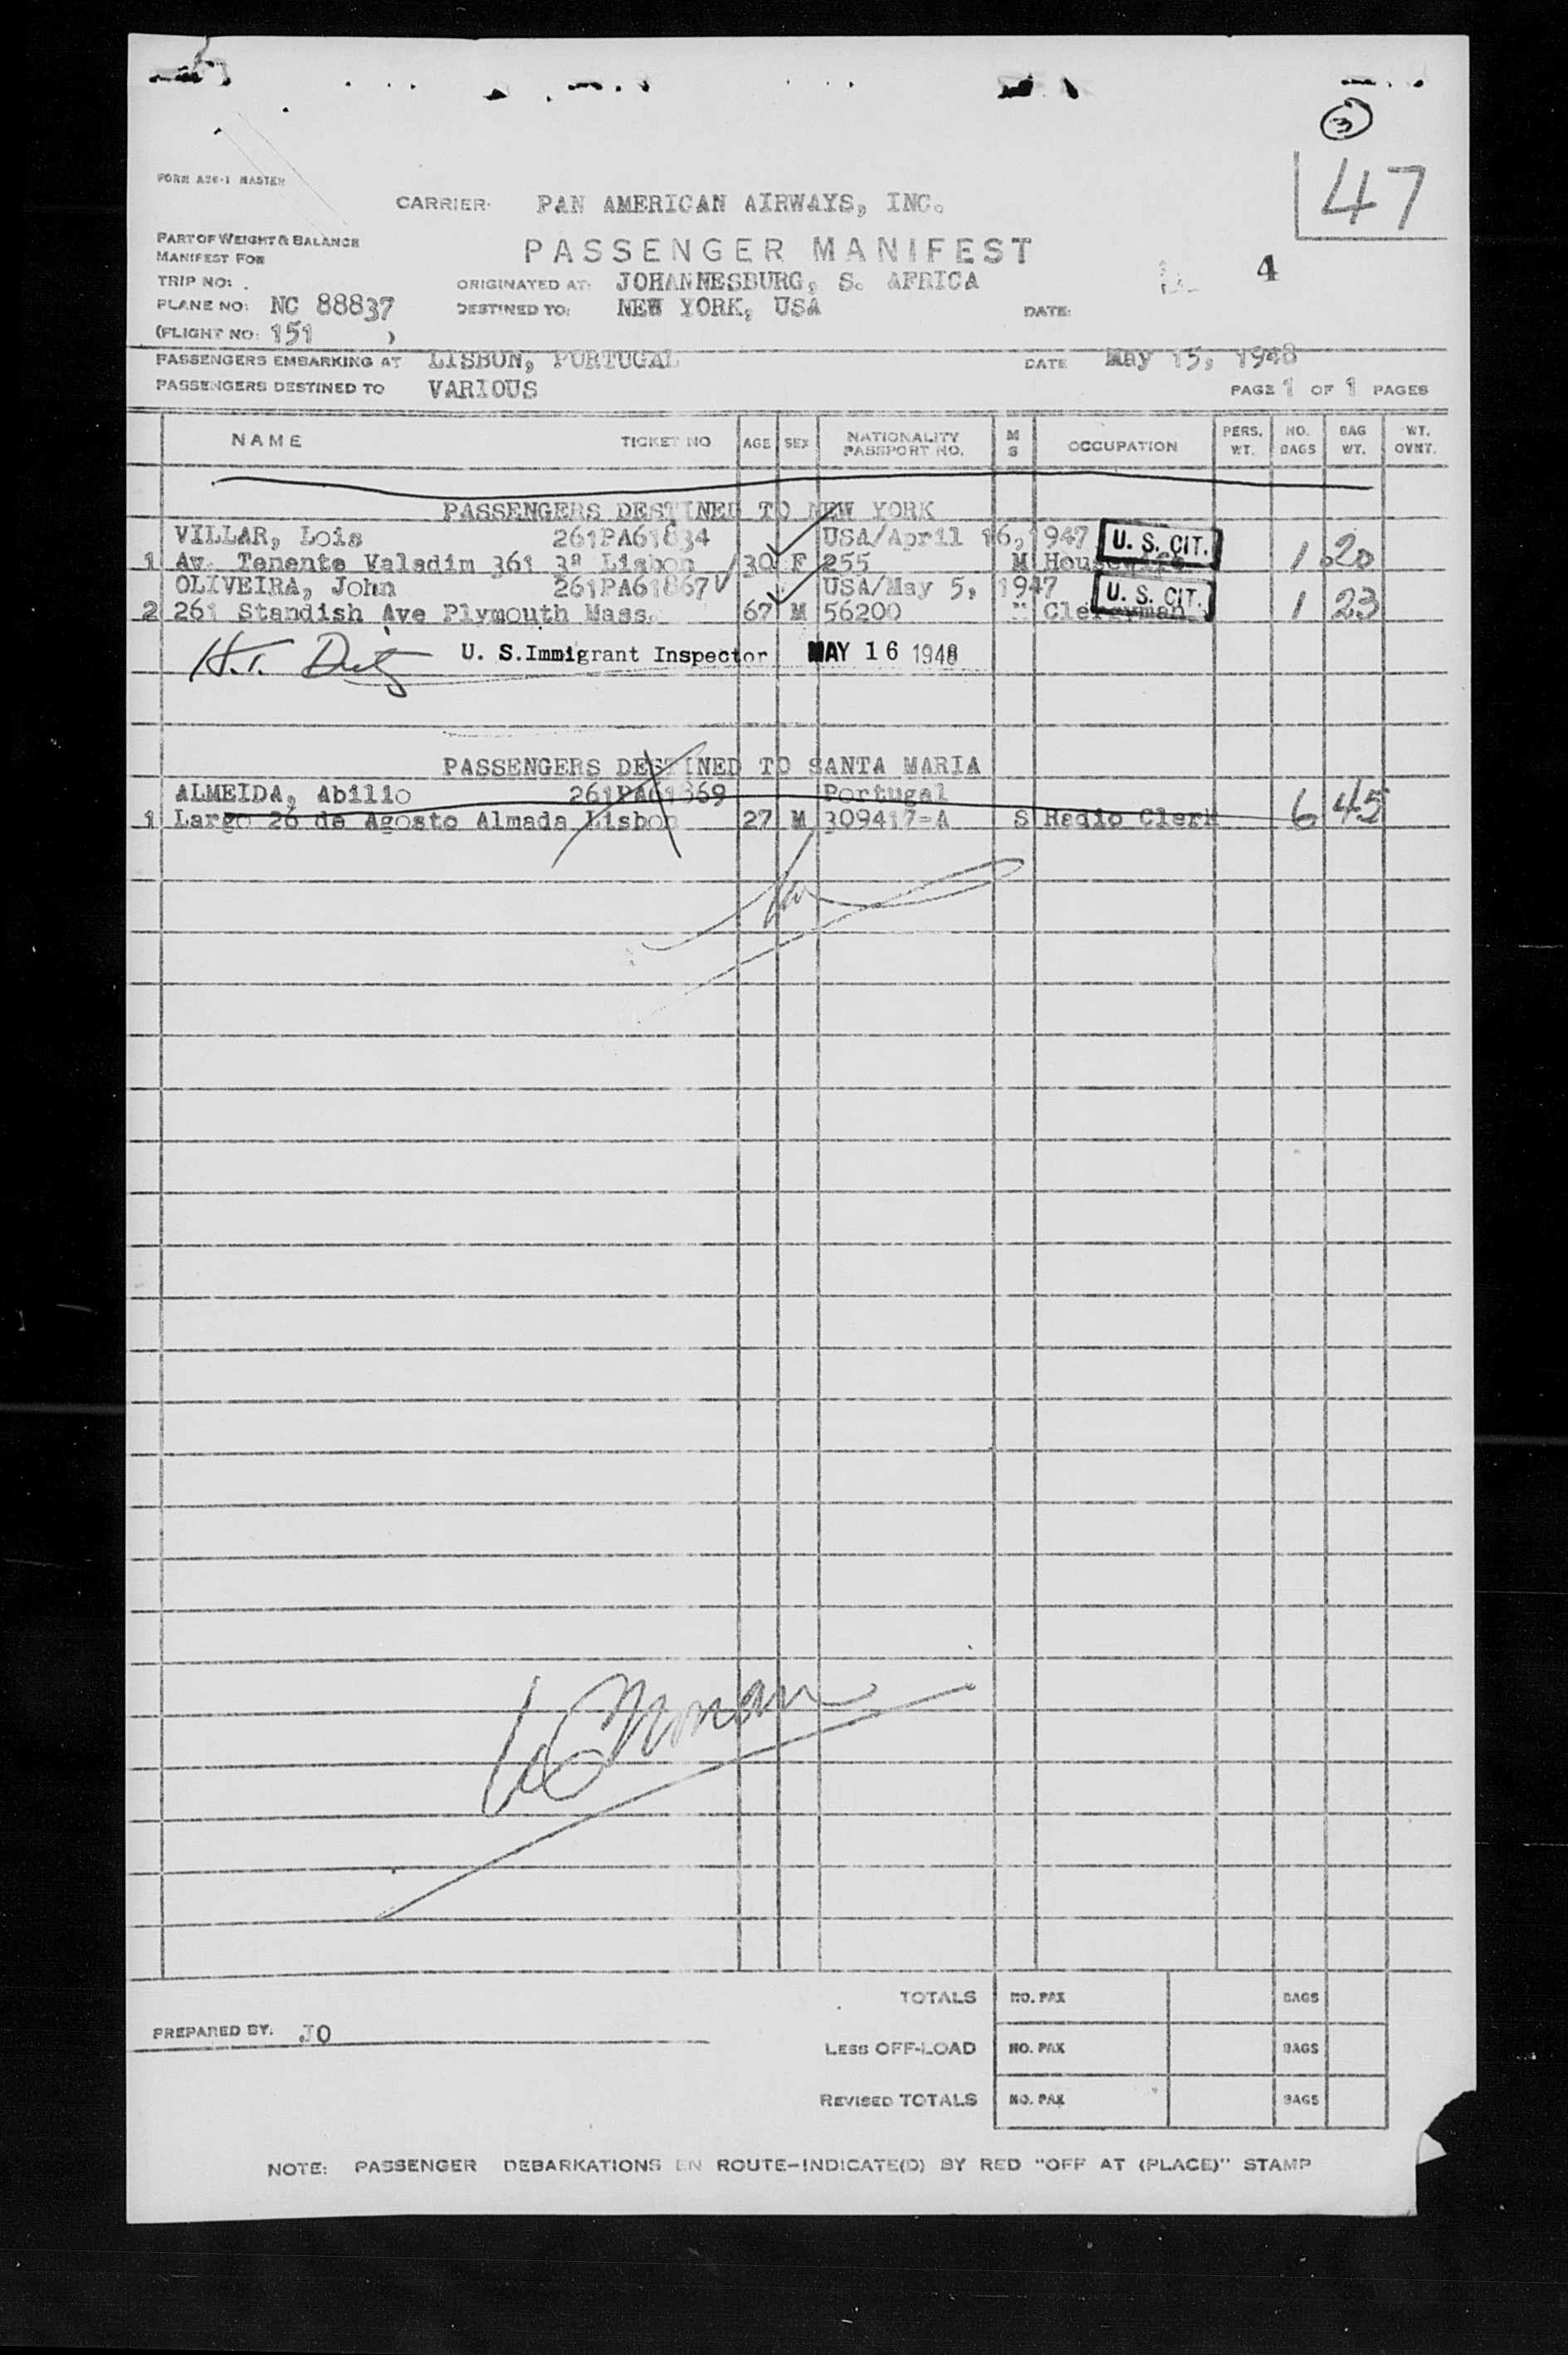 3
47
FORM A26-1 MASTER
CARRIER: PAN AMERICAN AIRWAYS, INC.
PART OF WEIGHT & BALANCE
MANIFEST FOR
PASSENGER MANIFEST
4
TRIP NO:
ORIGINATED AT: JOHANNESBURG, S. AFRICA
PLANE NO: NC 88837
DESTINED TO: NEW YORK, USA
DATE:
(FLIGHT NO: 151 )
PASSENGERS EMBARKING AT LISBON, PORTUGAL DATE May 15, 1948
PASSENGERS DESTINED TO VARIOUS PAGE 1 OF 1 PAGES
NAME TICKET NO AGE SEX NATIONALITY PASSPORT NO. M S OCCUPATION PERS. WT. NO. BAGS BAG WT. WT. OVNT.
PASSENGERS DESTINED TO NEW YORK
VILLAR, Lois 261PA61834 USA/April 16, 1947 U. S. CIT.
1 Av. Tenente Valadim 361 3ª Lisbon 30 F 255 M Housewife 1 20
OLIVEIRA, John 261PA61867 USA/May 5, 1947 U. S. CIT.
2 261 Standish Ave Plymouth Mass. 67 M 56200 " Clergyman 1 23
H.T. U. S. Immigrant Inspector MAY 16 1948
PASSENGERS DESTINED TO SANTA MARIA
ALMEIDA, Abilio 261PA61869 Portugal
1 Largo 26 de Agosto Almada Lisbon 27 M 309417=A S Radio Clerk 6 45
TOTALS NO. PAX BAGS
PREPARED BY: JO
LESS OFF-LOAD NO. PAX BAGS
REVISED TOTALS NO. PAX BAGS
NOTE: PASSENGER DEBARKATIONS EN ROUTE-INDICATE(D) BY RED "OFF AT (PLACE)" STAMP